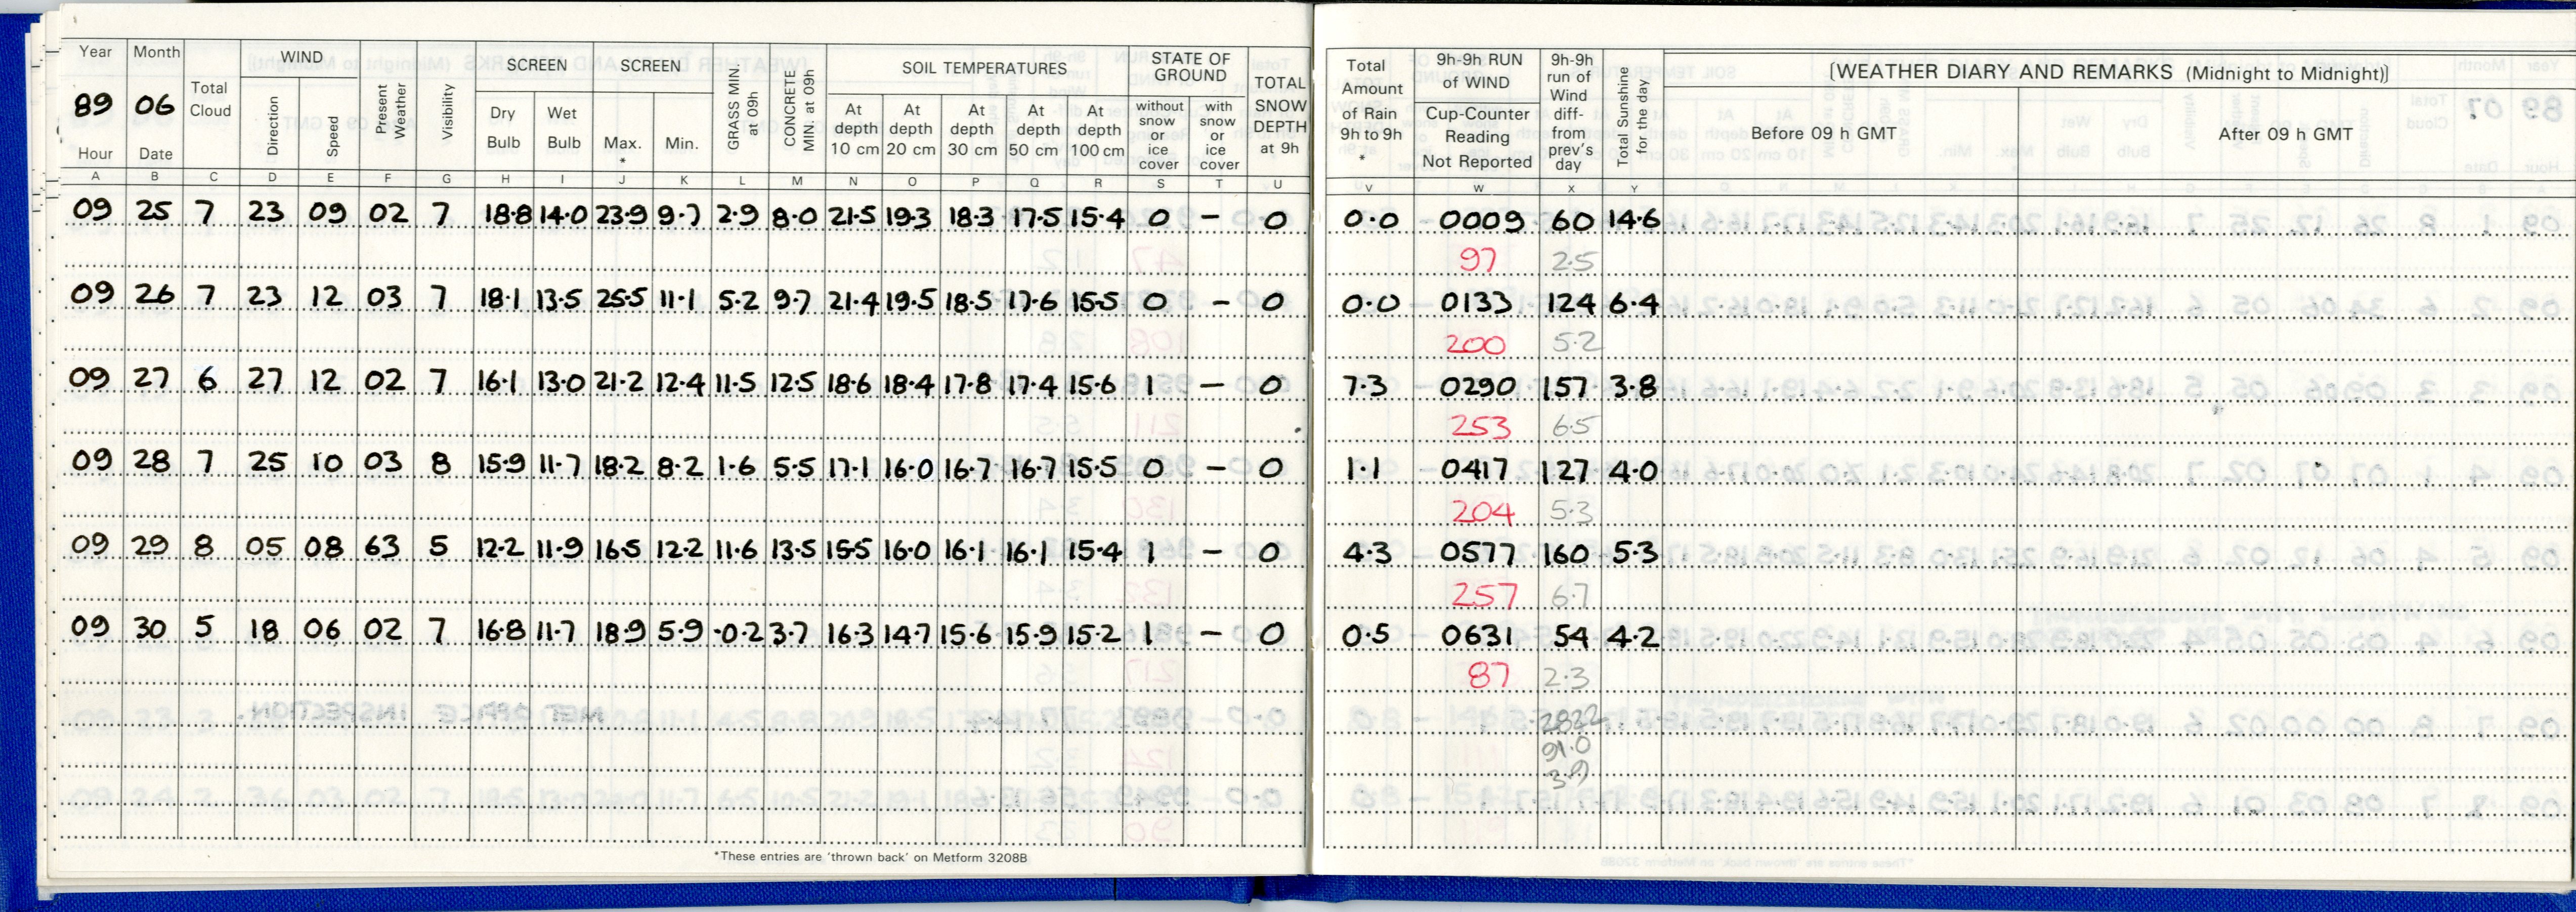 Year Month WIND SCREEN SCREEN SOIL TEMPERATURES STATE OF GROUND
89 06 Total Cloud Direction Speed Present Weather Visibility Dry Bulb Wet Bulb Max. * Min. GRASS MIN. at 09h CONCRETE MIN. at 09h At depth 10 cm At depth 20 cm At depth 30 cm At depth 50 cm At depth 100 cm without snow or ice cover with snow or ice cover TOTAL SNOW DEPTH at 9h
Hour Date
A B C D E F G H I J K L M N O P Q R S T U
09 25 7 23 09 02 7 18·8 14·0 23·9 9·7 2·9 8·0 21·5 19·3 18·3 17·5 15·4 0 – 0
09 26 7 23 12 03 7 18·1 13·5 25·5 11·1 5·2 9·7 21·4 19·5 18·5 17·6 15·5 0 – 0
09 27 6 27 12 02 7 16·1 13·0 21·2 12·4 11·5 12·5 18·6 18·4 17·8 17·4 15·6 1 – 0
09 28 7 25 10 03 8 15·9 11·7 18·2 8·2 1·6 5·5 17·1 16·0 16·7 16·7 15·5 0 – 0
09 29 8 05 08 63 5 12·2 11·9 16·5 12·2 11·6 13·5 15·5 16·0 16·1 16·1 15·4 1 – 0
09 30 5 18 06 02 7 16·8 11·7 18·9 5·9 -0·2 3·7 16·3 14·7 15·6 15·9 15·2 1 – 0
*These entries are 'thrown back' on Metform 3208B
Total Amount of Rain 9h to 9h * 9h-9h RUN of WIND Cup-Counter Reading Not Reported 9h-9h run of Wind diff- from prev's day Total Sunshine for the day [WEATHER DIARY AND REMARKS (Midnight to Midnight)]
Before 09 h GMT After 09 h GMT
V W X Y
0·0 0009 60 14·6
97 2·5
0·0 0133 124 6·4
200 5·2
7·3 0290 157 3·8
253 6·5
1·1 0417 127 4·0
204 5·3
4·3 0577 160 5·3
257 6·7
0·5 0631 54 4·2
87 2·3
2822
91·0
3·9